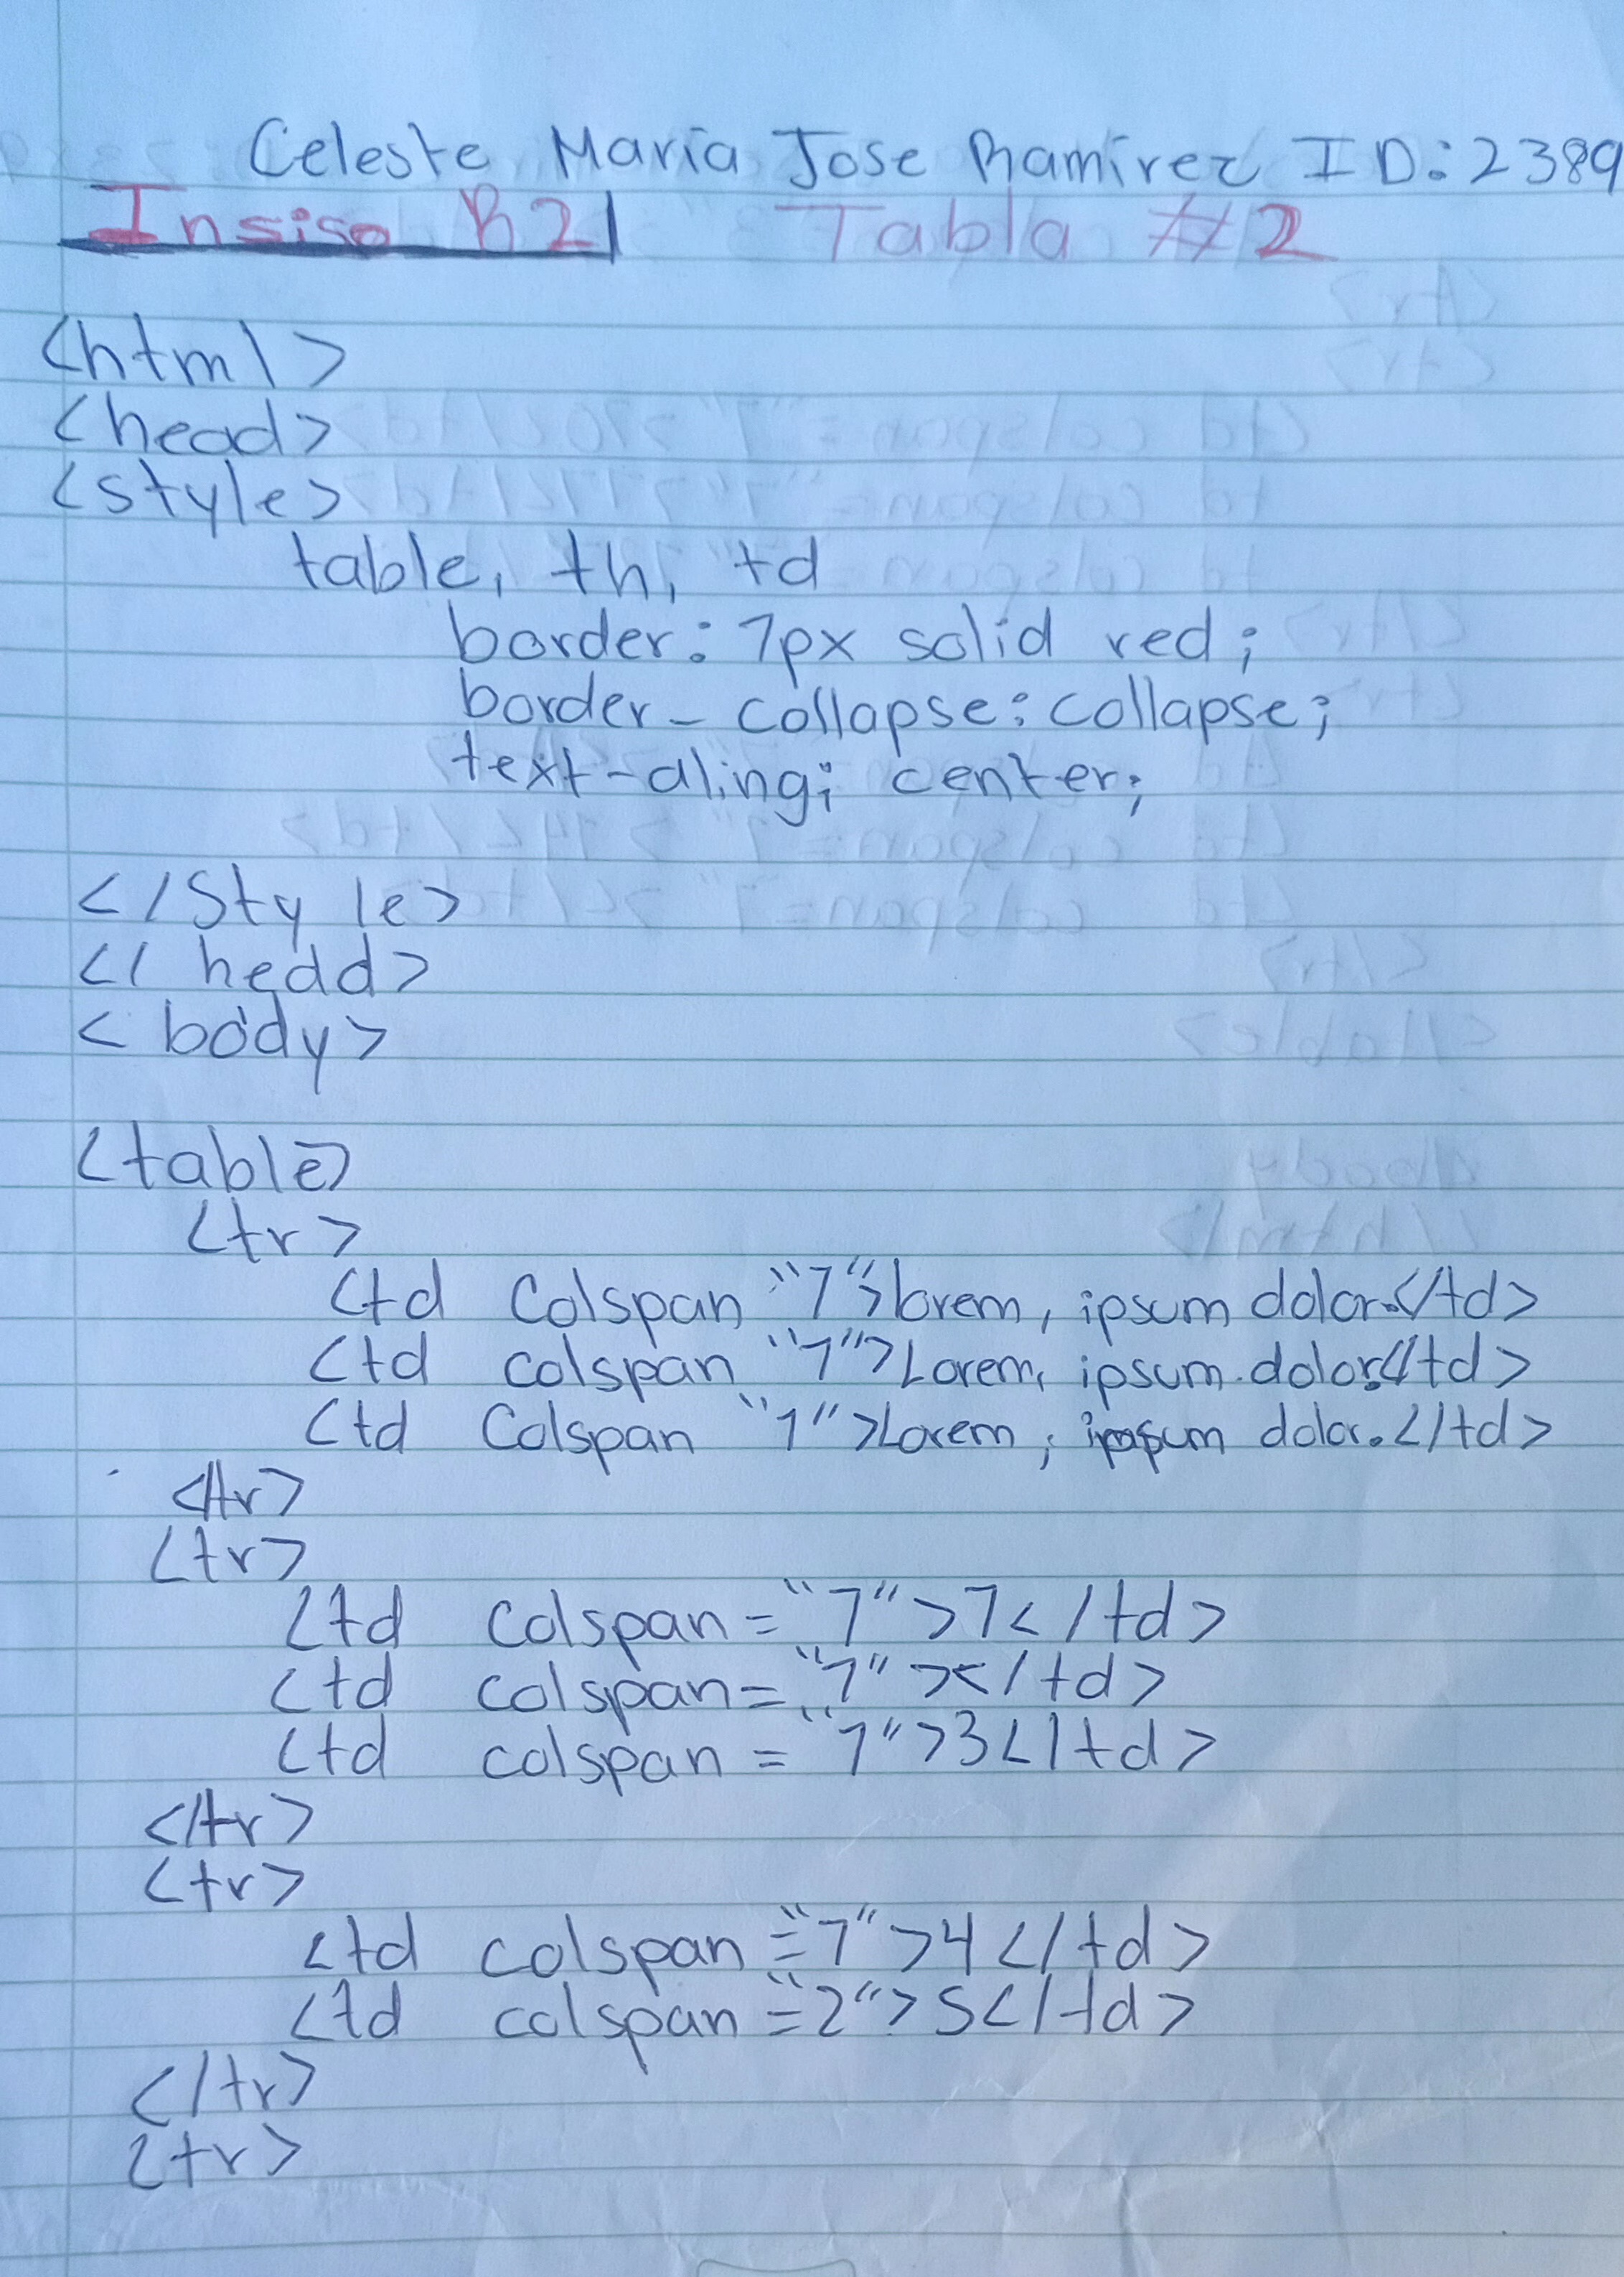 Celeste María Jose Ramírez ID: 2389
Insiso B2 Tabla #2
<html>
<head>
<style>
table, th, td
border: 1px solid red;
border-collapse: collapse;
text-aling; center;
</Style>
</hedd>
<body>
<table>
<tr>
<td Colspan "1">lorem, ipsum dolor.</td>
<td colspan "1">Lorem, ipsum dolor.</td>
<td Colspan "1">Lorem, ipsum dolor.</td>
</tr>
<tr>
<td colspan="1">1</td>
<td colspan="1"></td>
<td colspan="1">3</td>
</tr>
<tr>
<td colspan="1">4</td>
<td colspan="2">5</td>
</tr>
<tr>